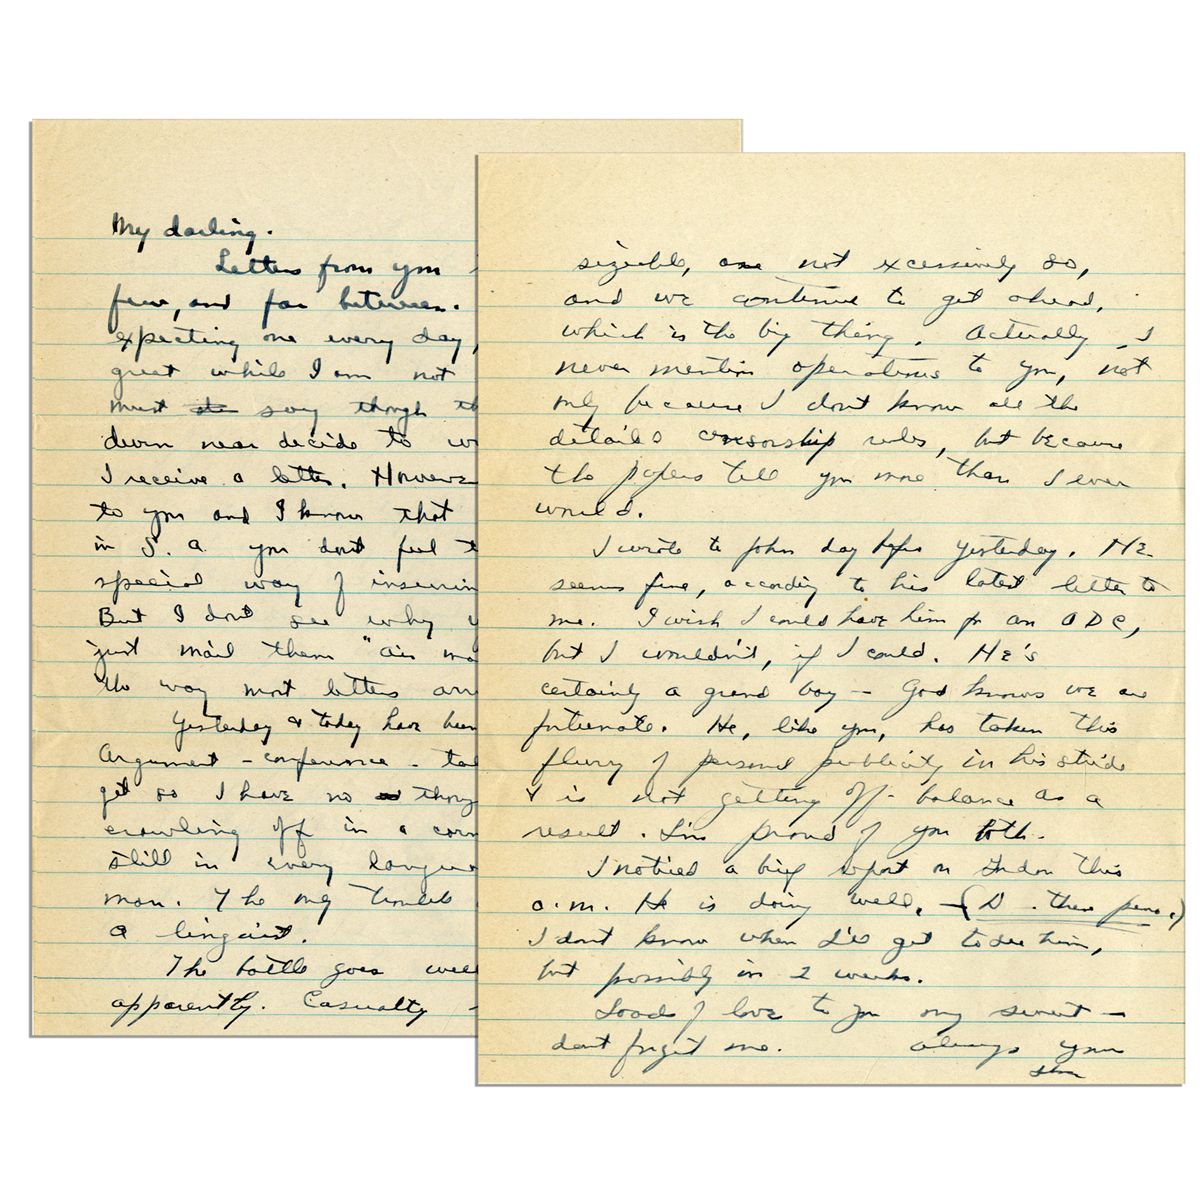 My darling.
Letters from you
few, and far between.
expecting one every day,
great while I am not
must say though th
down near decide to w
I receive a letter. Howeve
to you and I know that
in S. A. you don't feel t
special way of insurin
But I don't see why y
just mail them "air ma
the way most letters arri
Yesterday & today have been
Argument - conference - tal
get so I have no thoug
crawling off in a corn
still in every langua
man. The my trouble
a linguist.
The battle goes well
apparently. Casualty
sizeable, are not excessively so,
and we continue to get ahead,
which is the big thing. Actually, I
never mention operations to you, not
only because I don't know all the
details censorship rules, but because
the papers tell you more than I ever
would.
I wrote to John day before yesterday. He
seems fine, according to his latest letter to
me. I wish I could have him for an ADC,
but I wouldn't, if I could. He's
certainly a grand boy — God knows we are
fortunate. He, like you, has taken this
flurry of personal publicity in his stride
& is not getting off-balance as a
result. I'm proud of you both.
I noticed a brief report on this
a.m. He is doing well, — (D these pens.)
I don't know when I'll get to see him,
but possibly in 2 weeks.
Loads of love to you my sweet —
don't forget me. Always your